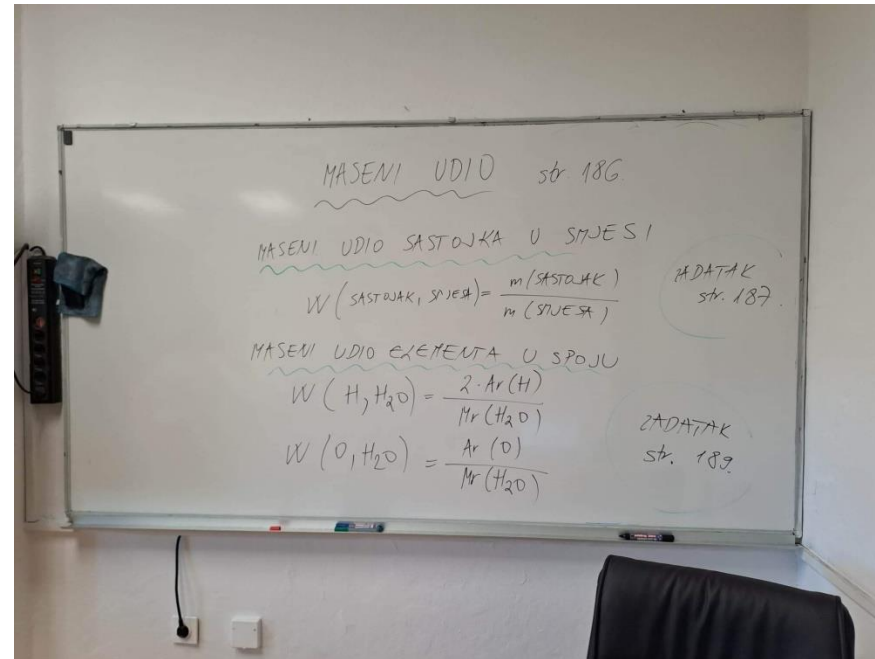 MASENI UDIO str. 186.
MASENI UDIO SASTOJKA U SMJESI
W (SASTOJAK, SMJESA) = m (SASTOJAK) / m (SMJESA)
ZADATAK
str. 187.
MASENI UDIO ELEMENTA U SPOJU
W (H, H₂O) = 2 · Ar (H) / Mr (H₂O)
W (O, H₂O) = Ar (O) / Mr (H₂O)
ZADATAK
str. 189.